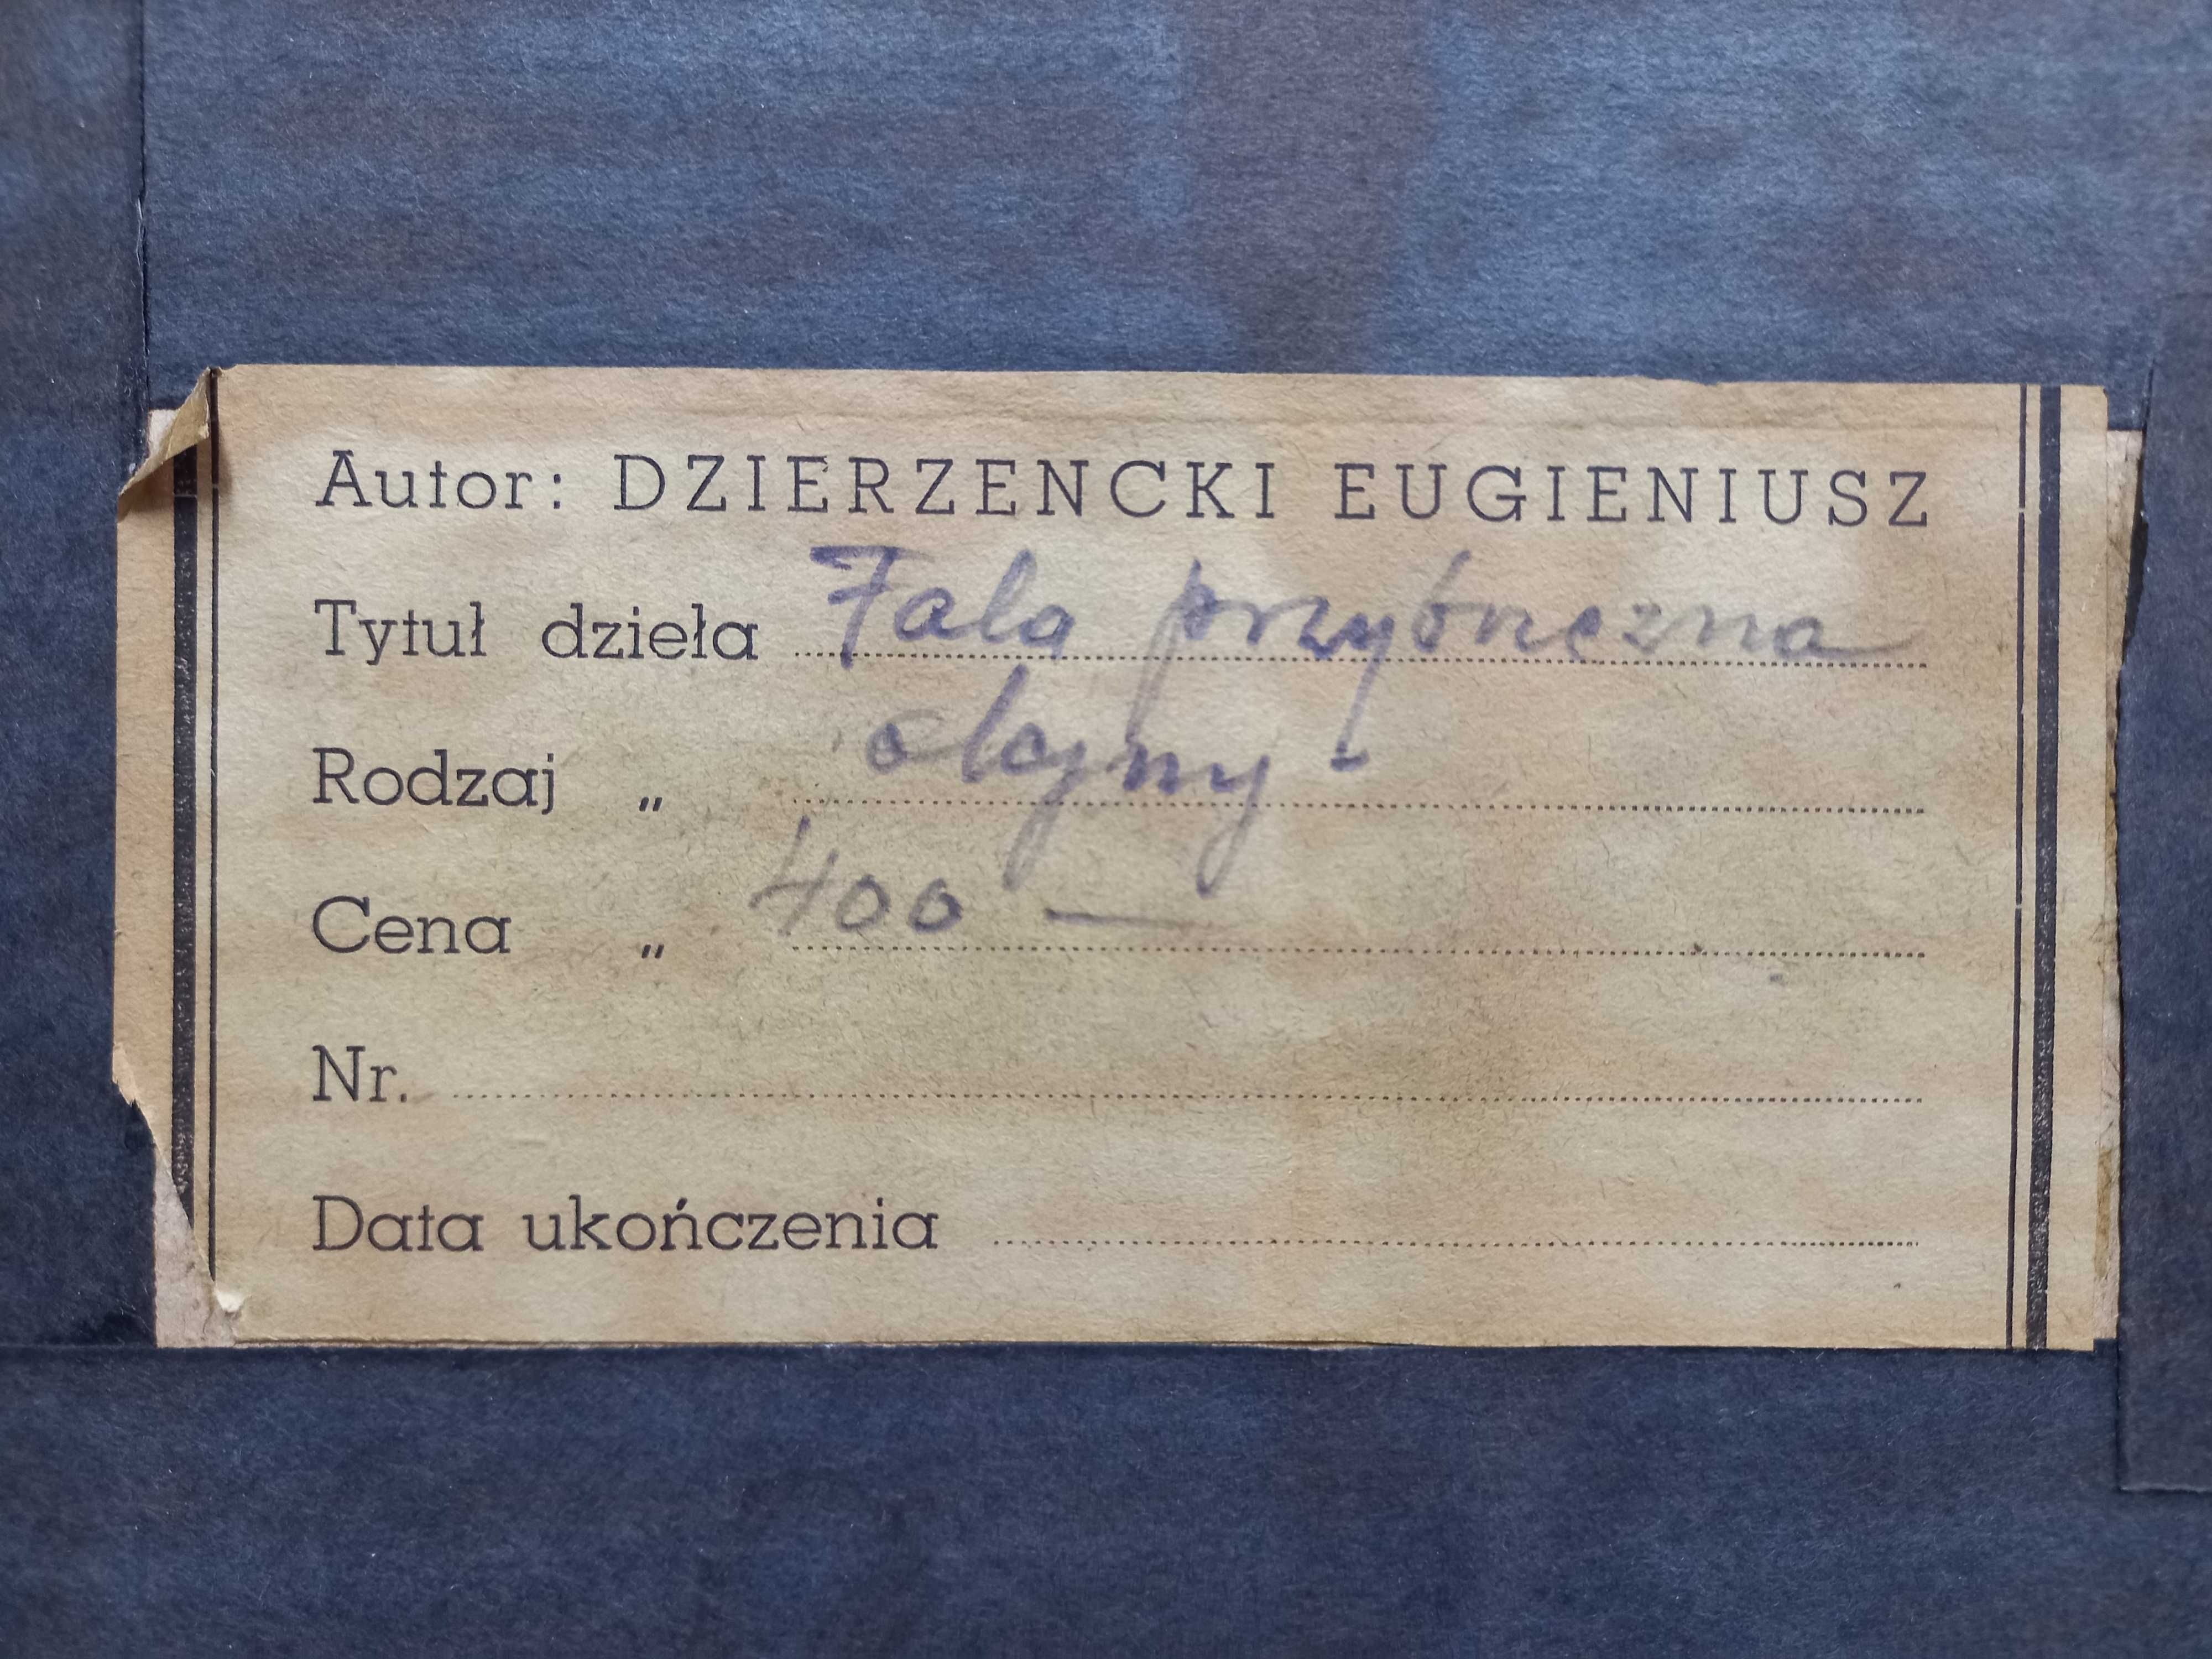 Autor: DZIERZENCKI EUGIENIUSZ
Tytuł dzieła Fala przybrzeżna
Rodzaj „ olejny -
Cena „ 400 —
Nr.
Data ukończenia